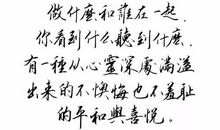 做什麼和誰在一起.
你看到什么聽到什麼.
有一種從心靈深處满溢
出来的不懊悔也不羞耻
的平和與喜悅。